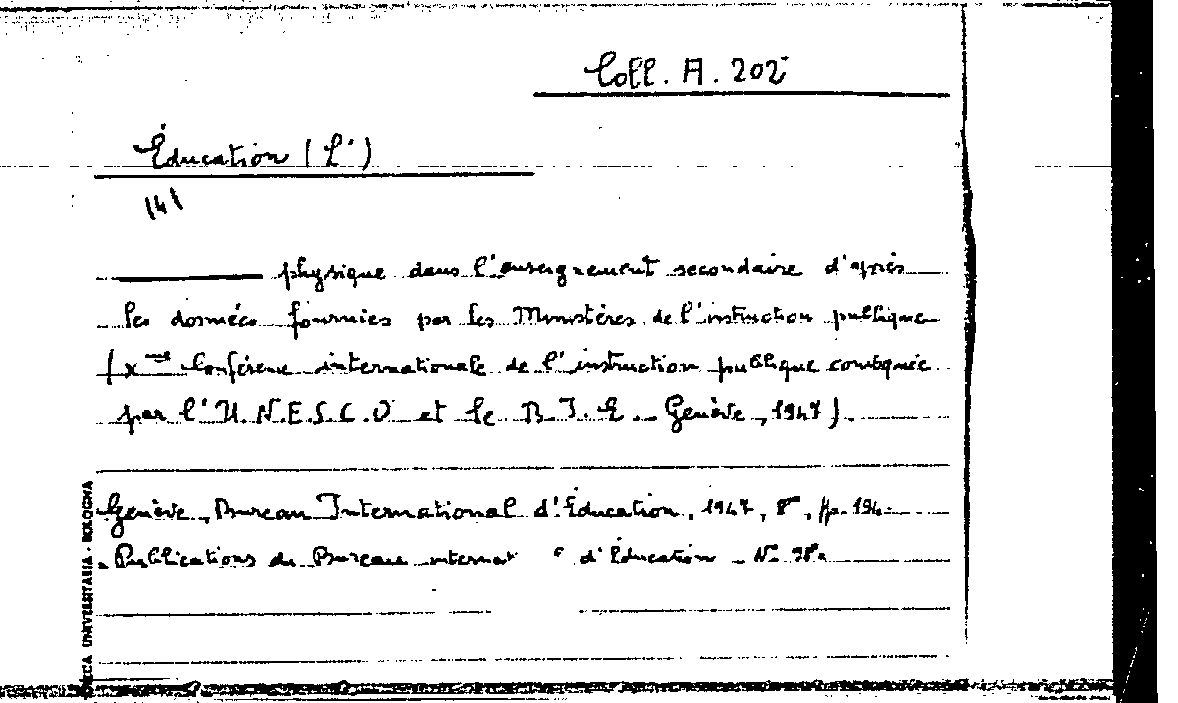 Coll. A. 202
Éducation (L')
141
physique dans l'enseignement secondaire d'après
les données fournies par les Ministères de l'instruction publique
(Xme Conférence internationale de l'instruction publique convoquée
par l'U.N.E.S.C.O et le B.I.E. Genève, 1947).
Genève, Bureau International d'Éducation, 1947, 8°, pp. 194.
Publications du Bureau internat d'Éducation - N. 98.
UNIVERSITARIA - BOLOGNA